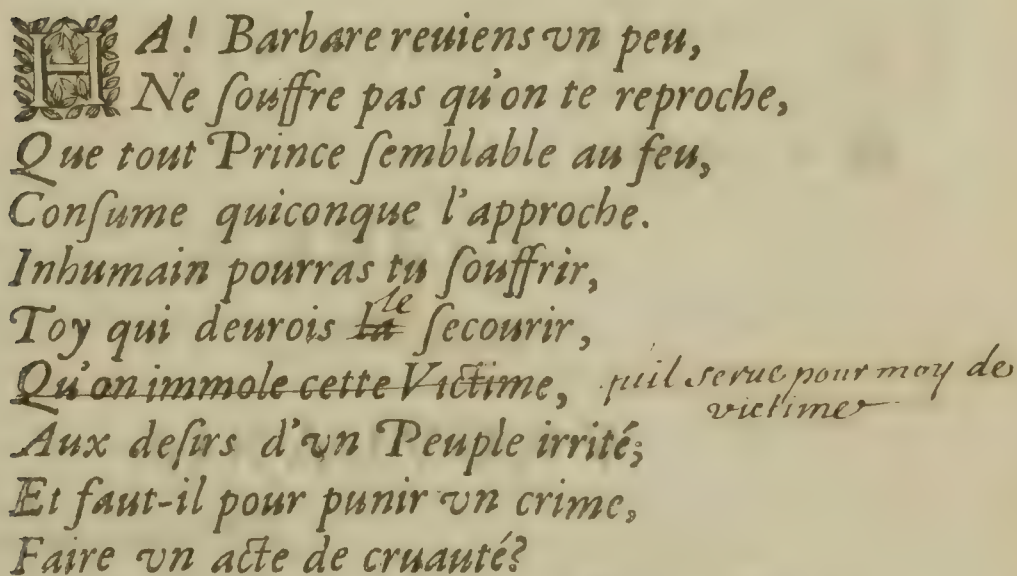 HA! Barbare reuiens vn peu,
Ne ſouffre pas qu'on te reproche,
Que tout Prince ſemblable au feu,
Conſume quiconque l'approche.
Inhumain pourras tu ſouffrir,
le
Toy qui deurois la ſecourir,
Qu'on immole cette Victime, quil serue pour moy de
victime
Aux deſirs d'vn Peuple irrité;
Et faut-il pour punir vn crime,
Faire vn acte de cruauté?